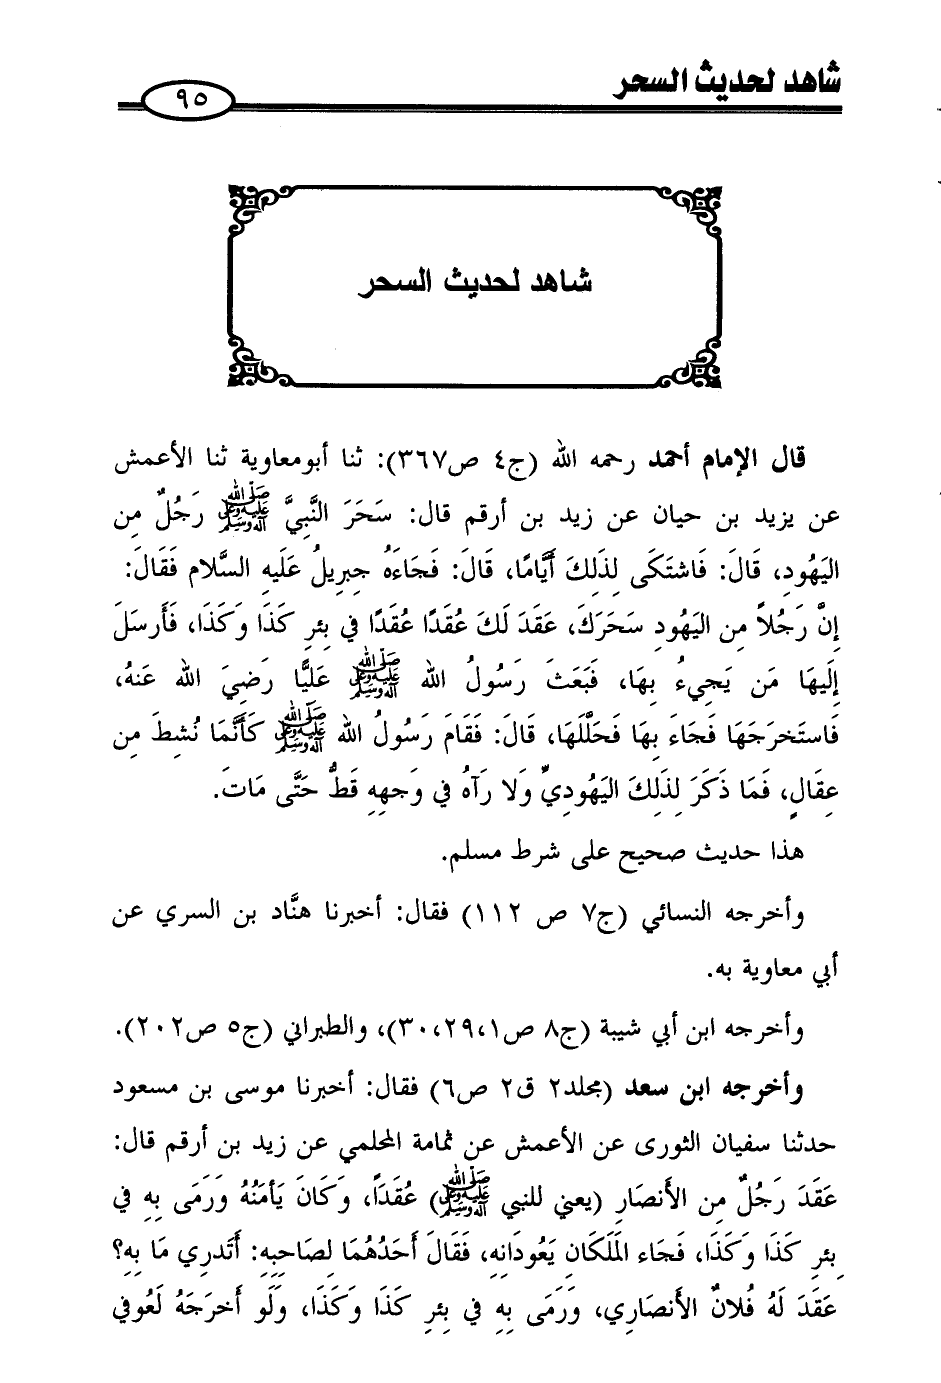 شاهد لحديث السحر
٩٥
شاهد لحديث السحر
قال الإمام أحمد رحمه الله (ج٤ ص٣٦٧): ثنا أبومعاوية ثنا الأعمش
عن يزيد بن حيان عن زيد بن أرقم قال: سَحَرَ النَّبِيَّ ﷺ رَجُلٌ مِن
اليَهُودِ، قَالَ: فَاشتَكَى لِذَلِكَ أَيَّامًا، قَالَ: فَجَاءَهُ جِبرِيلُ عَلَيهِ السَّلام فَقَالَ:
إِنَّ رَجُلاً مِن اليَهُودِ سَحَرَكَ، عَقَدَ لَكَ عُقَدًا عُقَدًا فِي بِئرِ كَذَا وَكَذَا، فَأَرسَلَ
إِلَيهَا مَن يَجِيءُ بِهَا، فَبَعَثَ رَسُولُ الله ﷺ عَلِيًّا رَضِيَ الله عَنهُ،
فَاستَخرَجَهَا فَجَاءَ بِهَا فَحَلَّلَهَا، قَالَ: فَقَامَ رَسُولُ الله ﷺ كَأَنَّمَا نُشِطَ مِن
عِقَالٍ، فَمَا ذَكَرَ لِذَلِكَ اليَهُودِيِّ وَلا رَآهُ فِي وَجهِهِ قَطُّ حَتَّى مَاتَ.
هذا حديث صحيح على شرط مسلم.
وأخرجه النسائي (ج٧ ص ١١٢) فقال: أخبرنا هنَّاد بن السري عن
أبي معاوية به.
وأخرجه ابن أبي شيبة (ج٨ ص٣٠،٢٩،١)، والطبراني (ج٥ ص٢٠٢).
وأخرجه ابن سعد (مجلد٢ ق٢ ص٦) فقال: أخبرنا موسى بن مسعود
حدثنا سفيان الثورى عن الأعمش عن ثمامة المحلمي عن زيد بن أرقم قال:
عَقَدَ رَجُلٌ مِن الأَنصَارِ (يعني للنبي ﷺ) عُقَدًا، وَكَانَ يَأمَنُهُ وَرَمَى بِهِ فِي
بِئرِ كَذَا وَكَذَا، فَجَاء المَلَكَانِ يَعُودَانِهِ، فَقَالَ أَحَدُهُمَا لِصَاحِبِهِ: أَتَدرِي مَا بِهِ؟
عَقَدَ لَهُ فُلانٌ الأَنصَارِي، وَرَمَى بِهِ فِي بِئرِ كَذَا وَكَذَا، وَلَو أَخرَجَهُ لَعُوفِي